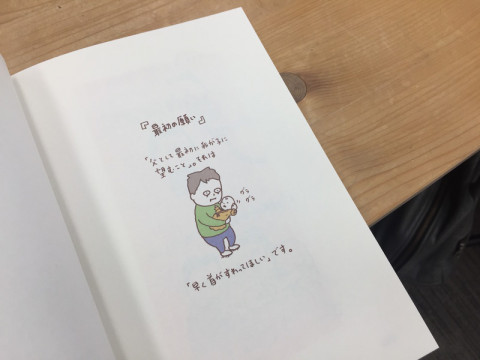 『最初の願い』
「父として最初に我が子に
望むこと」。それは
グラ
グラ
「早く首がすわってほしい」です。